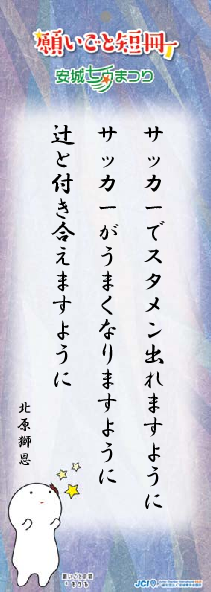 願いごと短冊
安城七夕まつり
サッカーでスタメン出れますように
サッカーがうまくなりますように
辻と付き合えますように
北原獅恩
願いごと短冊
JCI